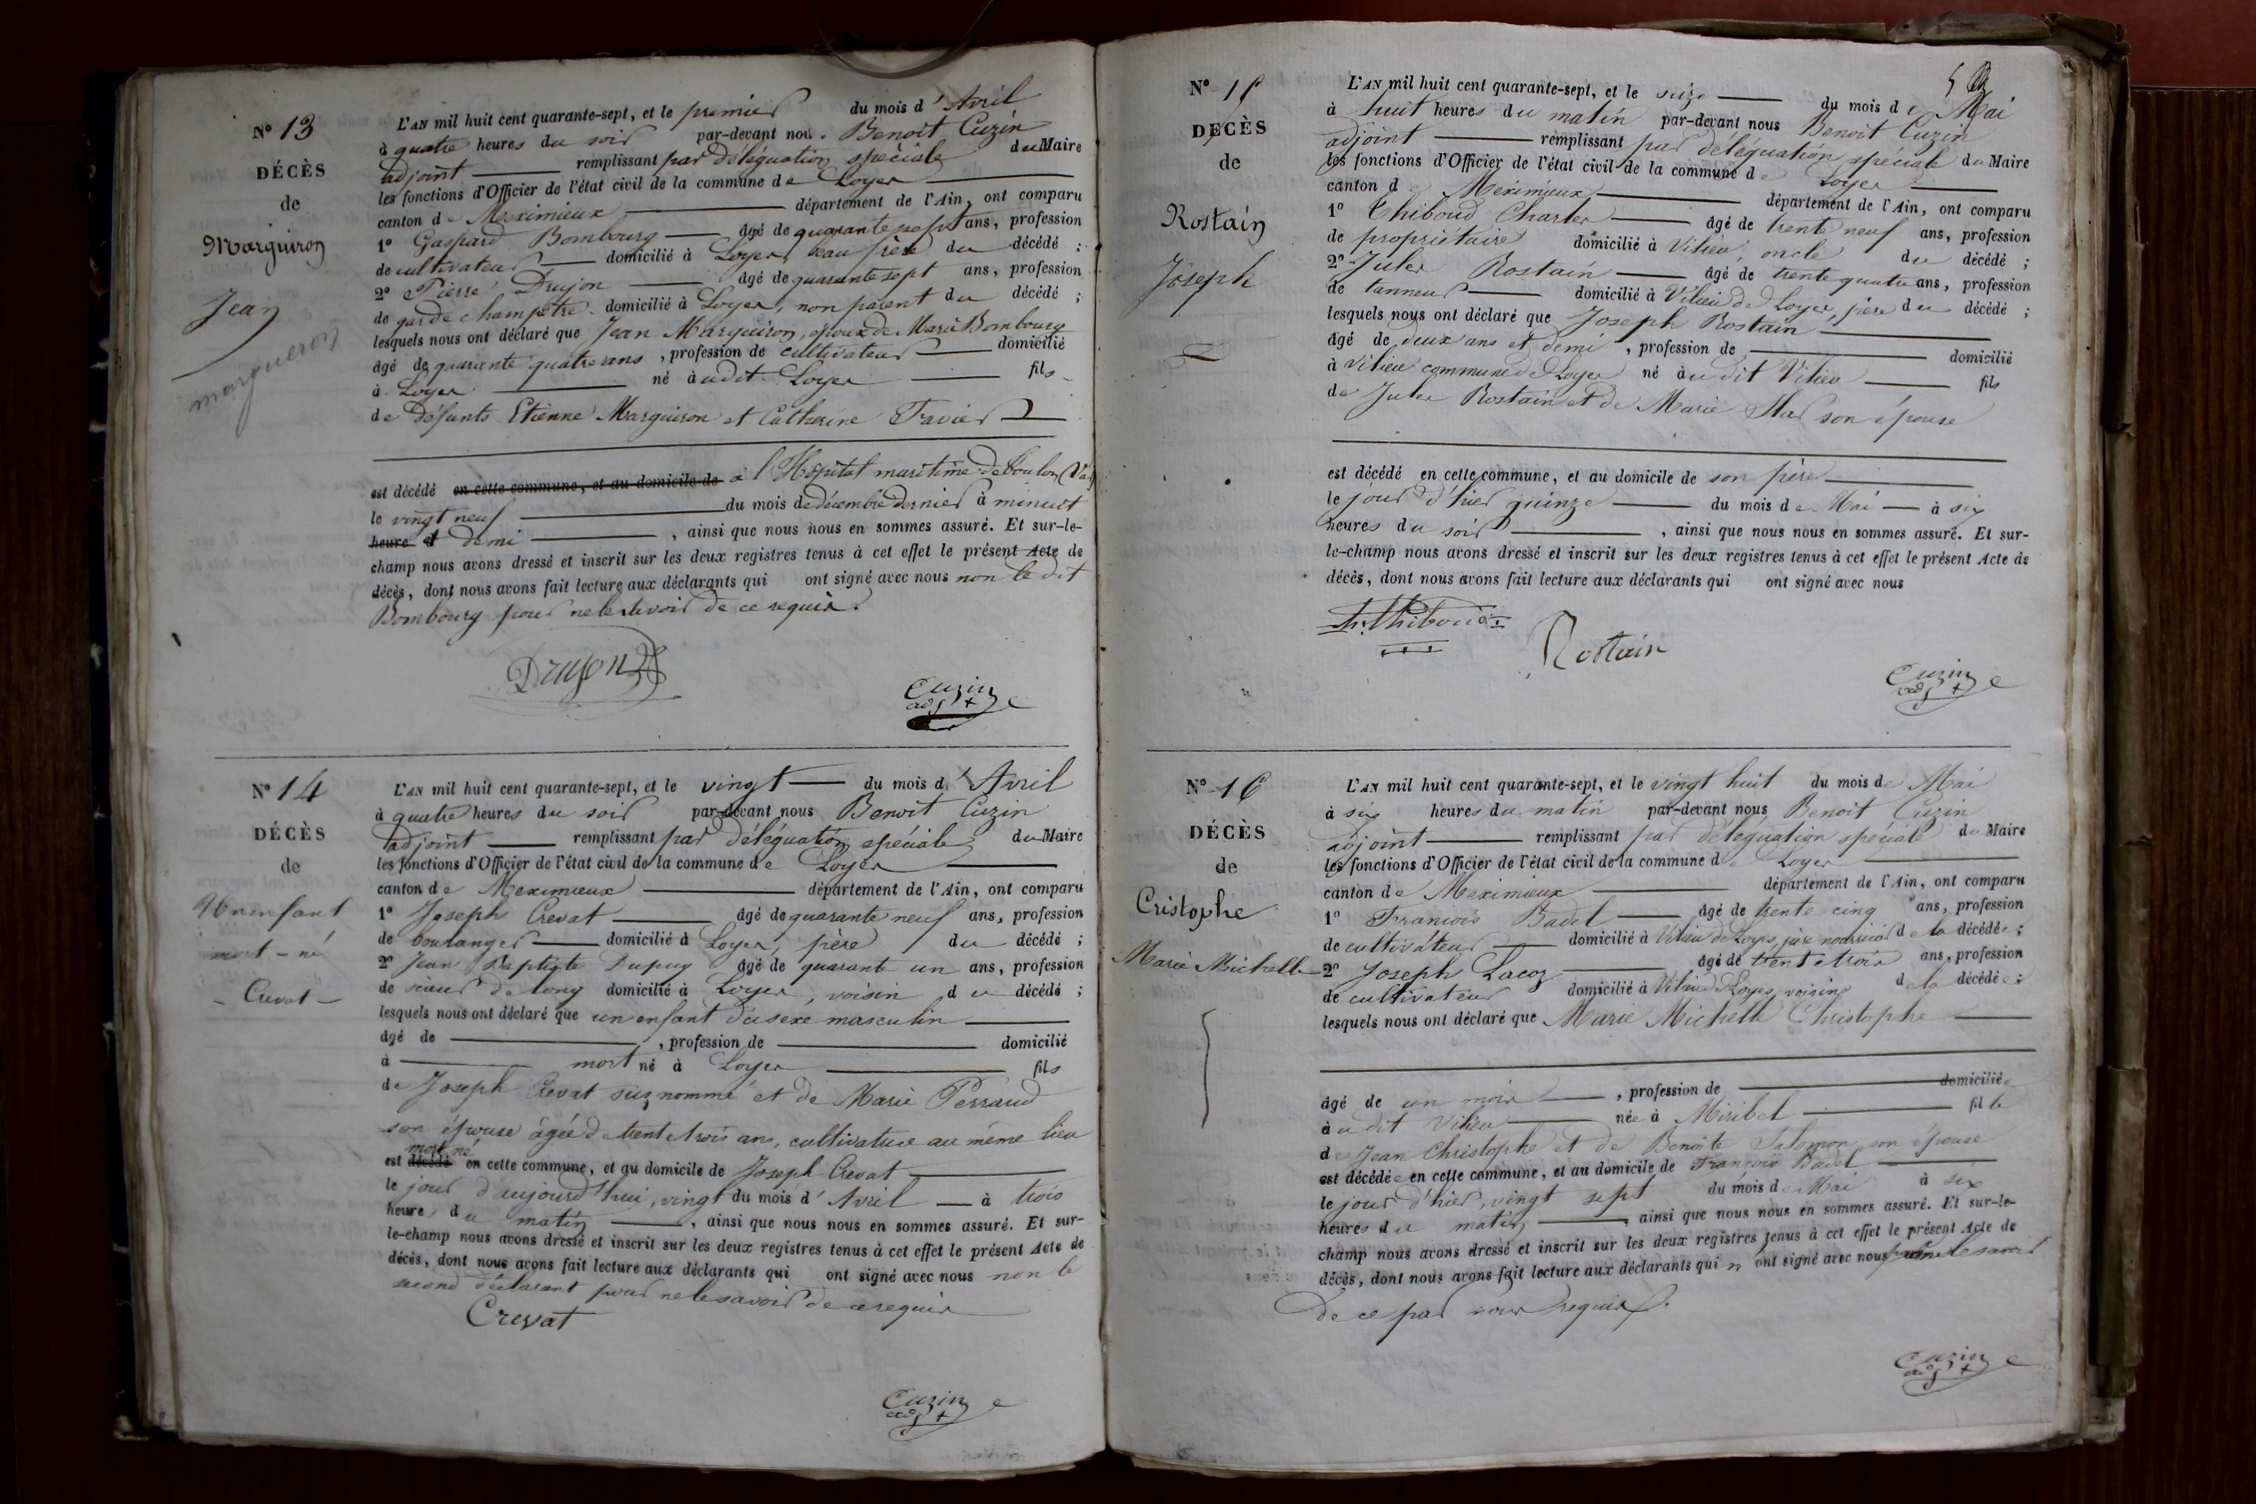 N° 13
DÉCÈS
de
Marguiron
Jean
margueron
L'AN mil huit cent quarante-sept, et le premier du mois d'Avril
à quatre heures du soir par-devant nous Benoît Cuzin
adjoint remplissant par délégation spéciale du Maire
les fonctions d'Officier de l'état civil de la commune de Loyes
canton de Meximieux département de l'Ain, ont comparu
1° Gaspard Bombourg âgé de quarante sept ans, profession
de cultivateur domicilié à Loyes, beau frère du décédé ;
2° Pierre Drujon âgé de quarante sept ans, profession
de garde champêtre domicilié à Loyes, non parent du décédé ;
lesquels nous ont déclaré que Jean Marguiron, époux de Marie Bombourg
âgé de quarante quatre ans, profession de cultivateur domicilié
à Loyes né à udit Loyes fils
de défunts Etienne Marguiron et Catherine Favier
est décédé en cette commune, et au domicile de à l'Hôpital maritime de Toulon (Var)
le vingt neuf du mois de décembre dernier à minuit
heure et demi, ainsi que nous nous en sommes assuré. Et sur-le-
champ nous avons dressé et inscrit sur les deux registres tenus à cet effet le présent Acte de
décès, dont nous avons fait lecture aux déclarants qui ont signé avec nous non le dit
Bombourg pour ne le savoir de ce requis.
Drujon
Cuzin
adjt
N° 14
DÉCÈS
de
Un enfant
mort-né
Crevat
L'AN mil huit cent quarante-sept, et le vingt du mois d'Avril
à quatre heures du soir par-devant nous Benoît Cuzin
adjoint remplissant par délégation spéciale du Maire
les fonctions d'Officier de l'état civil de la commune de Loyes
canton de Meximieux département de l'Ain, ont comparu
1° Joseph Crevat âgé de quarante neuf ans, profession
de boulanger domicilié à Loyes, père du décédé ;
2° Jean Baptiste Dupuy âgé de quarante un ans, profession
de scieur de long domicilié à Loyes, voisin du décédé ;
lesquels nous ont déclaré que un enfant du sexe masculin
âgé de , profession de domicilié
à mort né à Loyes fils
de Joseph Crevat susnommé et de Marie Perraud
son épouse âgée de trente trois ans, cultivatrice au même lieu
mort né
est décédé en cette commune, et au domicile de Joseph Crevat
le jour d'aujourd'hui, vingt du mois d'Avril à trois
heures du matin, ainsi que nous nous en sommes assuré. Et sur-
le-champ nous avons dressé et inscrit sur les deux registres tenus à cet effet le présent Acte de
décès, dont nous avons fait lecture aux déclarants qui ont signé avec nous non le
second déclarant pour ne le savoir de ce requis
Crevat
Cuzin
adjt
N° 15
DÉCÈS
de
Rostain
Joseph
L'AN mil huit cent quarante-sept, et le seize du mois de Mai
à huit heures du matin par-devant nous Benoît Cuzin
adjoint remplissant par délégation spéciale du Maire
les fonctions d'Officier de l'état civil de la commune de Loyes
canton de Meximieux département de l'Ain, ont comparu
1° Thiboud Charles âgé de trente neuf ans, profession
de propriétaire domicilié à Vilieu, oncle du décédé ;
2° Jules Rostain âgé de trente quatre ans, profession
de tanneur domicilié à Vilieu de Loyes, père du décédé ;
lesquels nous ont déclaré que Joseph Rostain
âgé de deux ans et demi, profession de domicilié
à Vilieu commune de Loyes né à udit Vilieu fils
de Jules Rostain et de Marie son épouse
est décédé en cette commune, et au domicile de son père
le jour d'hier quinze du mois de Mai à six
heures du soir, ainsi que nous nous en sommes assuré. Et sur-
le-champ nous avons dressé et inscrit sur les deux registres tenus à cet effet le présent Acte de
décès, dont nous avons fait lecture aux déclarants qui ont signé avec nous
Ch. Thiboud
Rostain
Cuzin
adjt
N° 16
DÉCÈS
de
Cristophe
Marie Michelle
L'AN mil huit cent quarante-sept, et le vingt huit du mois de Mai
à six heures du matin par-devant nous Benoît Cuzin
adjoint remplissant par délégation spéciale du Maire
les fonctions d'Officier de l'état civil de la commune de Loyes
canton de Meximieux département de l'Ain, ont comparu
1° François Badel âgé de trente cinq ans, profession
de cultivateur domicilié à Vilieu de Loyes, père nourricier de la décédée ;
2° Joseph Lacoz âgé de trente trois ans, profession
de cultivateur domicilié à Vilieu de Loyes, voisin de la décédée ;
lesquels nous ont déclaré que Marie Michelle Christophe
âgé de un mois, profession de domiciliée
à udit Vilieu née à Miribel fille
de Jean Christophe et de Benoîte Salomon son épouse
est décédée en cette commune, et au domicile de François Badel
le jour d'hier, vingt sept du mois de Mai à six
heures du matin, ainsi que nous nous en sommes assuré. Et sur-le-
champ nous avons dressé et inscrit sur les deux registres tenus à cet effet le présent Acte de
décès, dont nous avons fait lecture aux déclarants qui n'ont signé avec nous pour ne le savoir
de ce par nous requis.
Cuzin
adjt